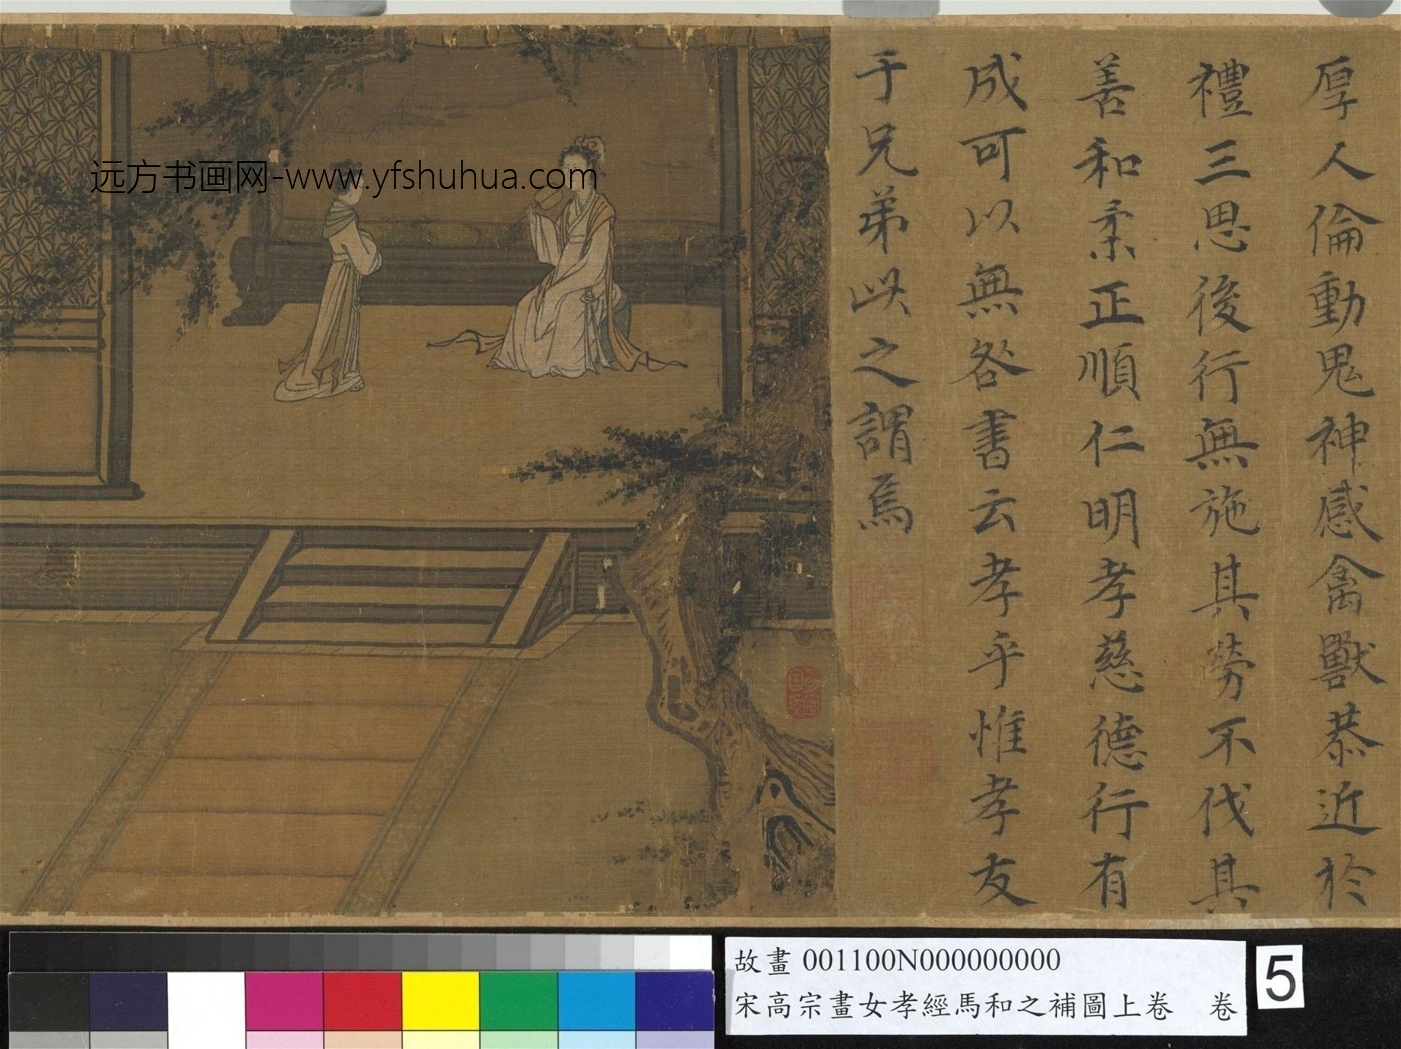 厚人倫動鬼神感禽獸恭近於
禮三思後行無施其勞不伐其
善和柔正順仁明孝慈德行有
成可以無咎書云孝乎惟孝友
于兄弟此之謂焉
远方书画网-www.yfshuhua.com
故畫 001100N000000000
宋高宗畫女孝經馬和之補圖上卷 卷
5